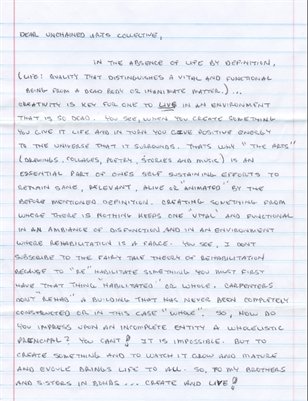 DEAR UNCHAINED ARTS COLLECTIVE,
IN THE ABSENCE OF LIFE BY DEFINITION,
(LIFE: QUALITY THAT DISTINGUISHES A VITAL AND FUNCTIONAL
BEING FROM A DEAD BODY OR INANIMATE MATTER.)...
CREATIVITY IS KEY FOR ONE TO LIVE IN AN ENVIRONMENT
THAT IS SO DEAD. YOU SEE, WHEN YOU CREATE SOMETHING
YOU GIVE IT LIFE AND IN TURN YOU GIVE POSITIVE ENERGY
TO THE UNIVERSE THAT IT SURROUNDS. THATS WHY "THE ARTS"
(DRAWINGS, COLLAGES, POETRY, STORIES AND MUSIC) IS AN
ESSENTIAL PART OF ONES SELF SUSTAINING EFFORTS TO
REMAIN SANE, RELEVANT, ALIVE OR "ANIMATED" BY THE
BEFORE MENTIONED DEFINITION. CREATING SOMETHING FROM
WHERE THERE IS NOTHING KEEPS ONE "VITAL" AND FUNCTIONAL
IN AN AMBIANCE OF DISFUNCTION AND IN AN ENVIRONMENT
WHERE REHABILITATION IS A FARCE. YOU SEE, I DONT
SUBSCRIBE TO THE FAIRY TALE THEORY OF REHABILITATION
BECAUSE TO "RE" HABILITATE SOMETHING YOU MUST FIRST
HAVE THAT THING HABILITATED OR WHOLE. CARPENTERS
DONT "REHAB" A BUILDING THAT HAS NEVER BEEN COMPLETELY
CONSTRUCTED OR IN THIS CASE "WHOLE". SO, HOW DO
YOU IMPRESS UPON AN INCOMPLETE ENTITY A WHOLELISTIC
PRINCIPAL? YOU CANT! IT IS IMPOSSIBLE. BUT TO
CREATE SOMETHING AND TO WATCH IT GROW AND MATURE
AND EVOLVE BRINGS LIFE TO ALL. SO, TO MY BROTHERS
AND SISTERS IN BONDS... CREATE AND LIVE!